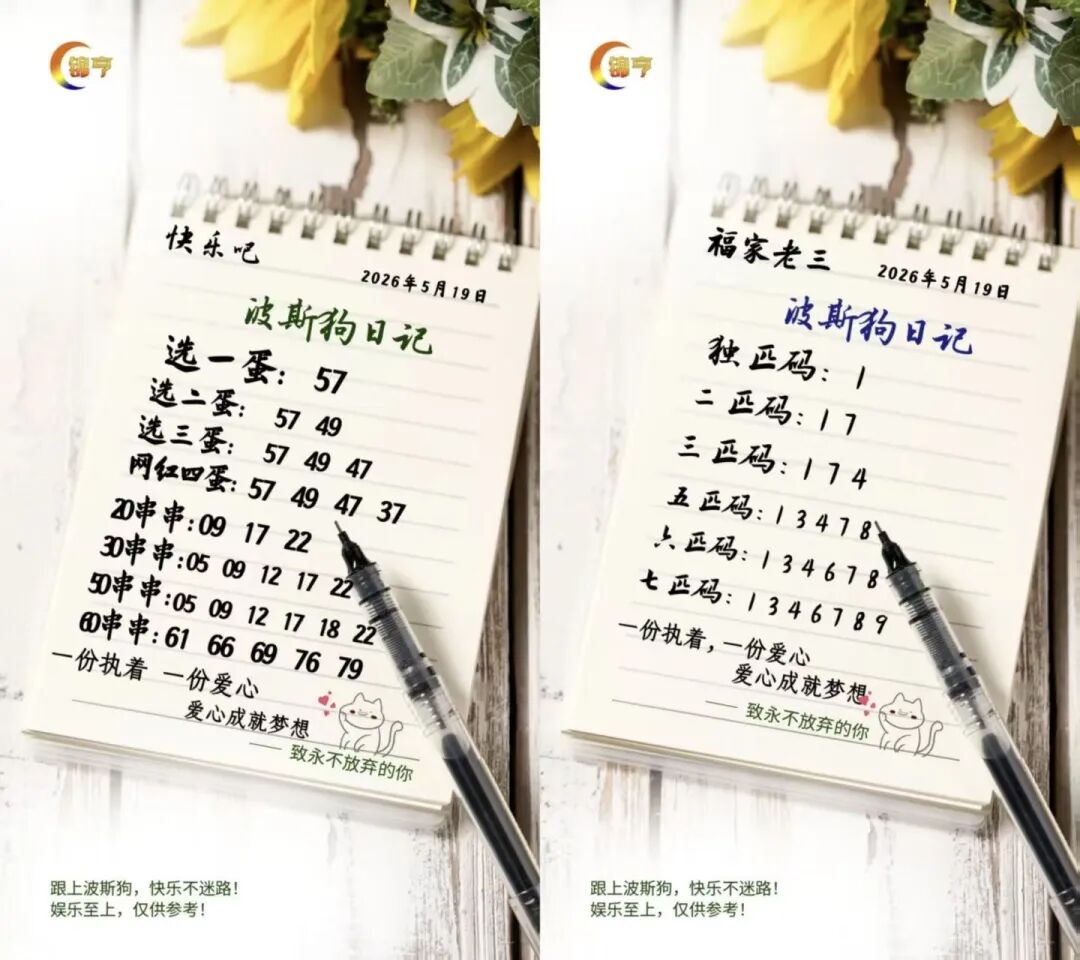 锦亨
快乐吧
2026年5月19日
波斯狗日记
选一蛋: 57
选二蛋: 57 49
选三蛋: 57 49 47
网红四蛋: 57 49 47 37
20串串: 09 17 22
30串串: 05 09 12 17 22
50串串: 05 09 12 17 18 22
60串串: 61 66 69 76 79
一份执着 一份爱心
爱心成就梦想
—— 致永不放弃的你
跟上波斯狗，快乐不迷路!
娱乐至上，仅供参考!
锦亨
福家老三
2026年5月19日
波斯狗日记
独匹码: 1
二匹码: 1 7
三匹码: 1 7 4
五匹码: 1 3 4 7 8
六匹码: 1 3 4 6 7 8
七匹码: 1 3 4 6 7 8 9
一份执着，一份爱心
爱心成就梦想
—— 致永不放弃的你
跟上波斯狗，快乐不迷路!
娱乐至上，仅供参考!